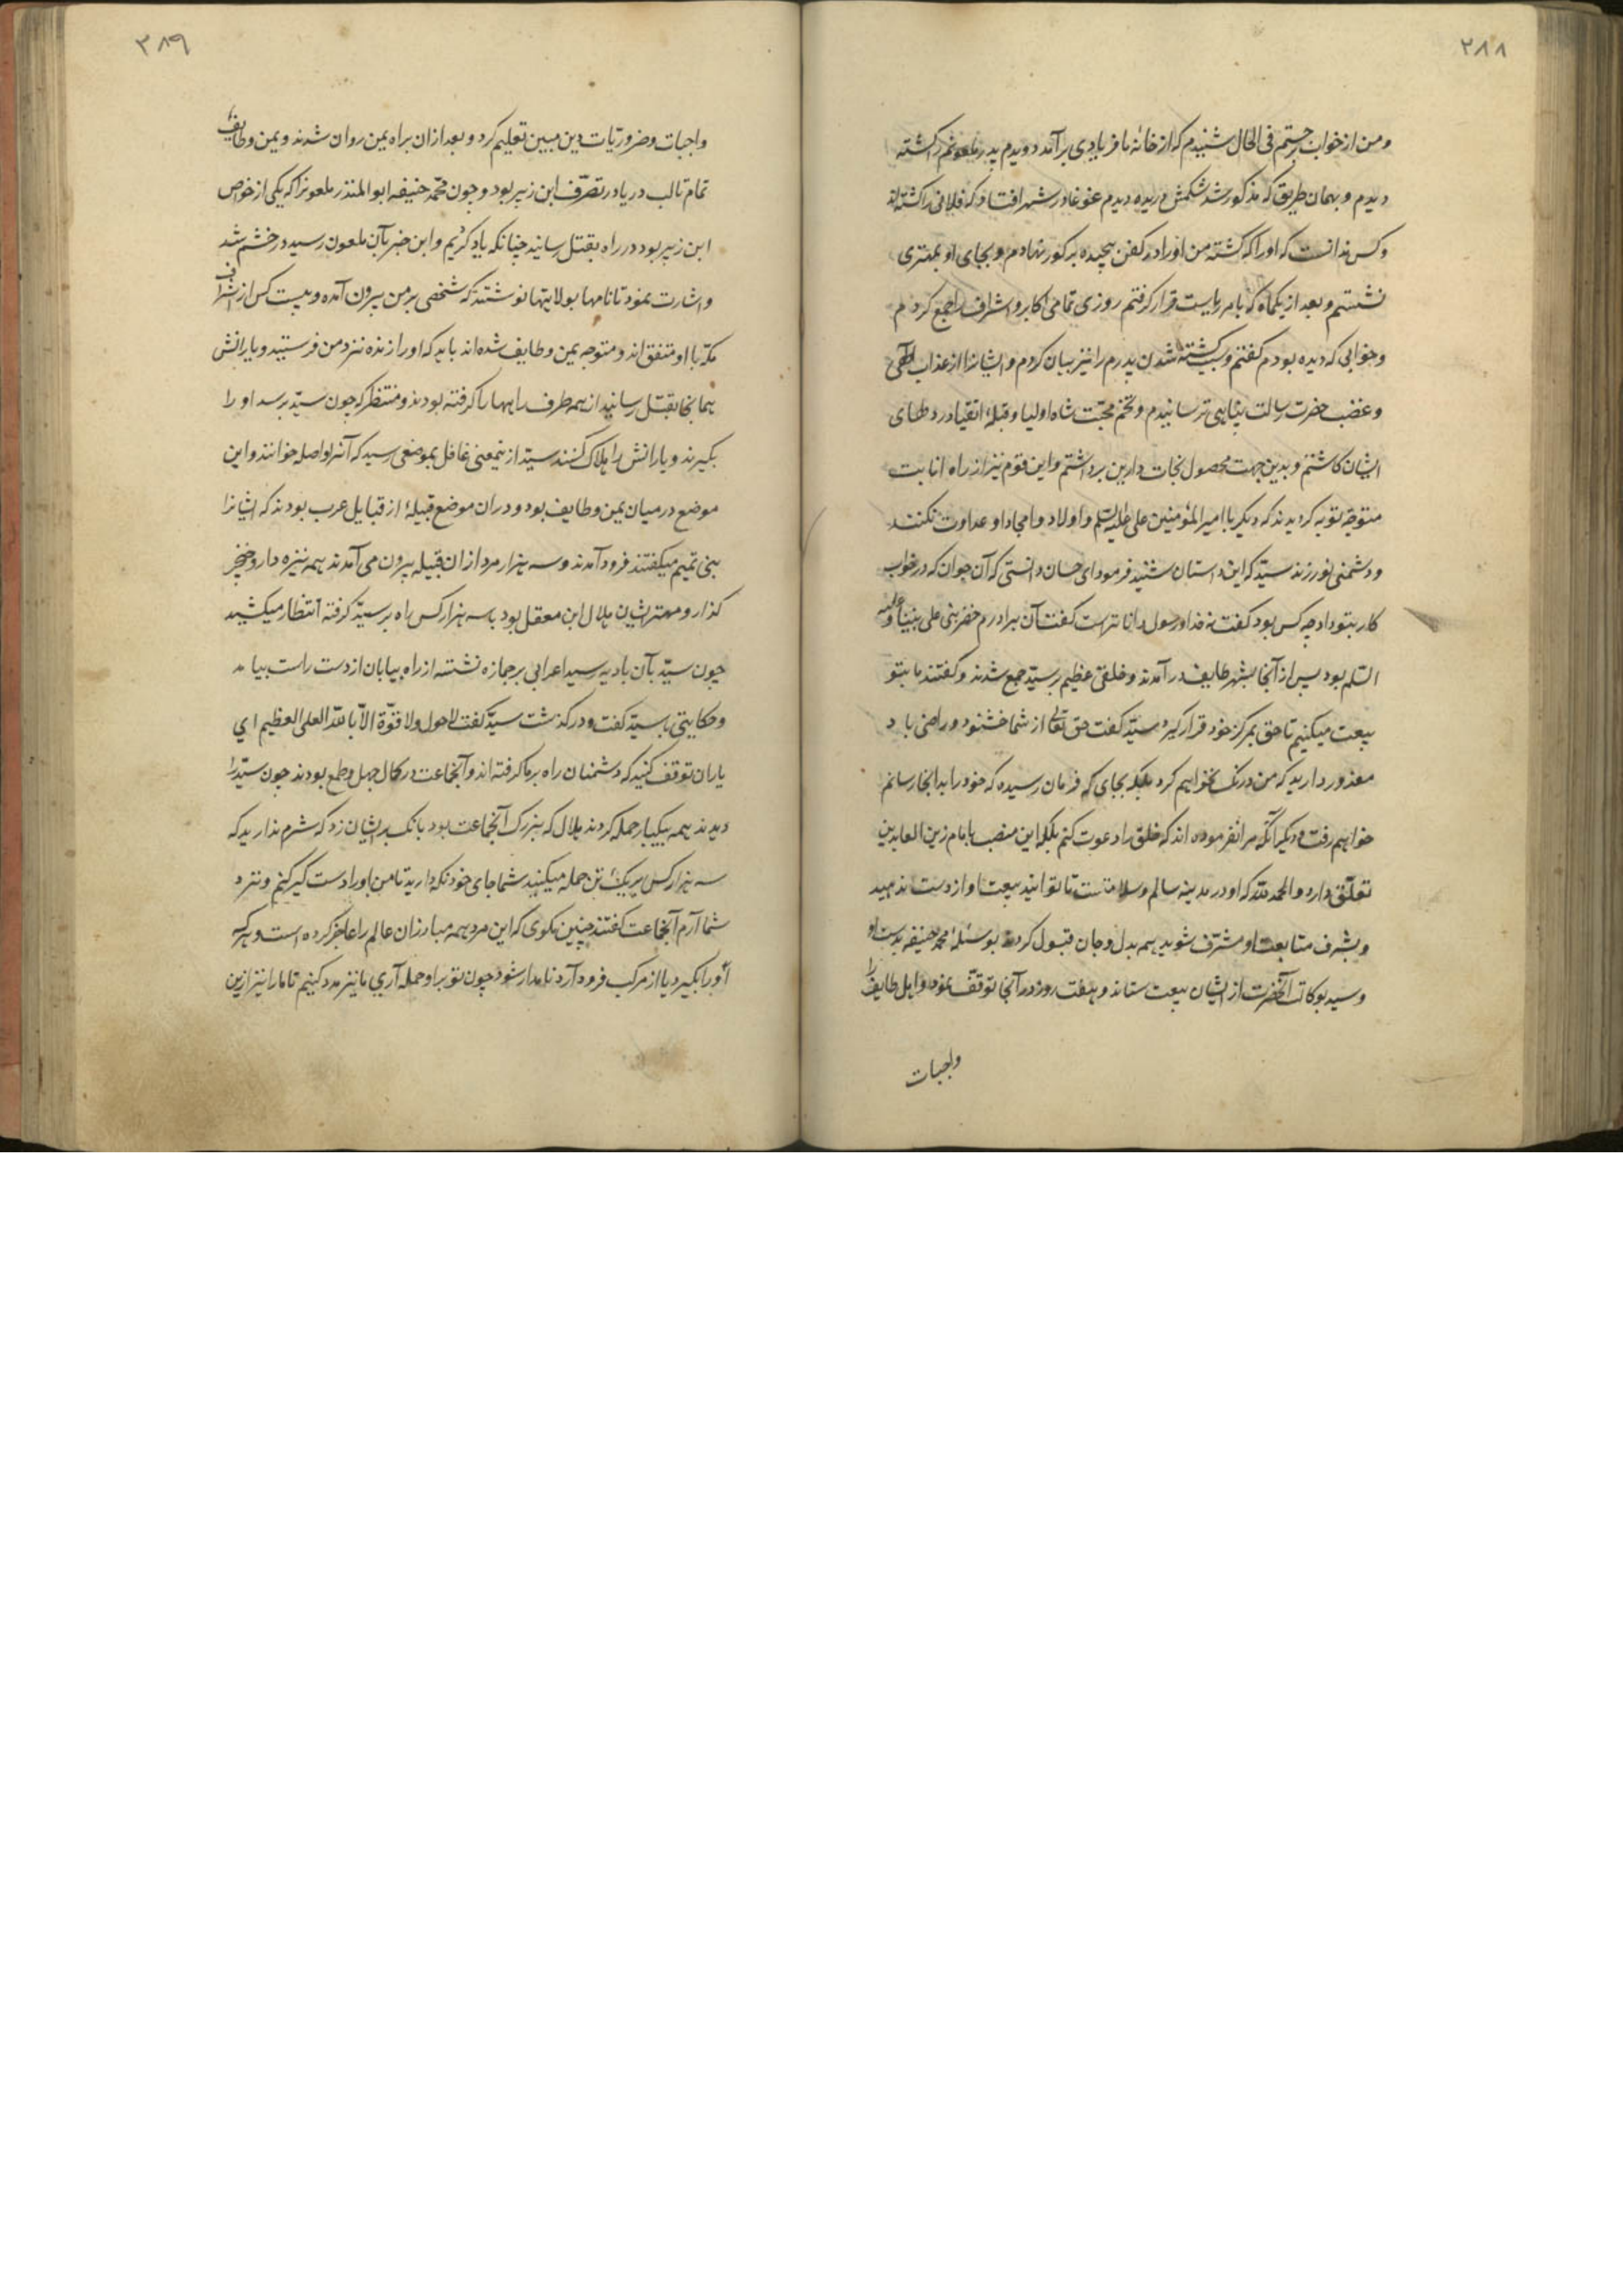 ۲۸۸
ومن از خواب جستم فی الحال شنیدم که از خانهٔ ما فریادی برآمد دویدم پدر ملعونم را کشته
دیدم و بهمان طریق که مذکور شد شکمش دریده دیدم غوغا در شهر افتاد که فلانی را کشته‌اند
و کس ندانست که او را که کشته من او را در کفن پیچیده بگور نهادم و بجای او بمهتری
نشستم و بعد از یکماه که بامر ریاست قرار گرفتم روزی تمامی اکابر و اشراف را جمع کردم
و خوابی که دیده بودم گفتم و سبب کشته شدن پدرم را نیز بیان کردم و ایشانرا از عذاب الهی
و غضب حضرت رسالت پناهی ترسانیدم و تخم محبّت شاه اولیا و قبلهٔ اتقیا در دلهای
ایشان کاشتم و بدین جهت محصول نجات دارین برداشتم و این قوم نیز از راه انابت
متوجّه توبه گردیدند که دیگر با امیر المؤمنین علی علیه السلم و اولاد و امجاد او عداوت نکنند
و دشمنی نورزند سیّد که این داستان شنید فرمود ای حسان دانستی که آن جوان که در خواب
کار بتو داد چه کس بود گفت نه خدا و رسول داناترست گفت آن برادرم خضر نبی علی نبینا و علیه
السلم بود پس از آنجا بشهر طایف درآمدند و خلقی عظیم بر سیّد جمع شدند و گفتند ما بتو
بیعت میکنیم تا حق بمرکز خود قرار گیرد سیّد گفت حق تعالی از شما خشنود و راضی باد
معذور دارید که من درنگ نخواهم کرد بلکه بجای که فرمان رسیده که خود را بدانجا رسانم
خواهم رفت و دیگر آنکه مرا نفرموده اند که خلق را دعوت کنم بلکه این منصب بامام زین العابدین
تعلّق دارد و الحمد لله که او در مدینه سالم و سلامتست تا توانید بیعت او از دست ندهید
و بشرف متابعت او مشرّف شوید همه بدل و جان قبول کردند بوسیلهٔ محمد حنیفه بدست او
و سید بوکالت آنحضرت از ایشان بیعت ستاند و هفت روز در آنجا توقّف نمود و اهل طایف را
واجبات
۳۸۹
واجبات و ضروریّات دین مبین تعلیم کرد و بعد از ان براه یمن روان شدند و یمن و طایف
تمام تا لب دریا در تصرّف ابن زبیر بود و چون محمّد حنیفه ابو المنذر ملعونرا که یکی از خواص
ابن زبیر بود در راه بقتل رسانید چنانکه یاد کردیم و این خبر بآن ملعون رسید در خشم شد
و اشارت نمود تا نامها بولایتها نوشتند که شخصی بر من بیرون آمده و بیست کس از اشراف
مکّه با او متفق اند و متوجه یمن و طایف شده‌اند باید که او را زنده نزد من فرستید و یارانش
همانجا بقتل رسانید از همه طرف راهها را گرفته بودند و منتظر که چون سیّد برسد او را
بگیرند و یارانش را هلاک کنند سیّد ازینمعنی غافل بموضعی رسید که آنرا واصله خوانند و این
موضع در میان یمن و طایف بود و در ان موضع قبیلهٔ از قبایل عرب بودند که ایشانرا
بنی تمیم میگفتند فرود آمدند و سه هزار مرد از ان قبیله بیرون می آمدند همه نیزه دار و خنجر
گذار و مهتر ایشان هلال ابن معقل بود با سه هزار کس راه بر سیّد گرفته انتظار میکشید
چون سیّد بآن بادیه رسید اعرابی بر جمازه نشسته از راه بیابان از دست راست بیامد
و حکایتی با سیّد گفت و درگذشت سیّد گفت لا حول ولا قوّة الاّ بالله العلی العظیم ای
یاران توقف کنید که دشمنان راه بر ما گرفته اند و آنجماعت در کمال جهل و طمع بودند چون سیّد را
دیدند همه بیکبار حمله کردند هلال که بزرک آنجماعت بود بانک بر ایشان زد که شرم ندارید که
سه هزار کس بر یک تن حمله میکنید شما جای خود نگه دارید تا من او را دست گیر کنم و نزد
شما آرم آنجماعت گفتند چنین مگوی که این مرد همه مبارزان عالم را عاجز کرده است و هر که
او را بگیرد یا از مرکب فرود آرد نامدار شود چون تو بر او حمله آری ما نیز مدد کنیم تا ما را نیز ازین